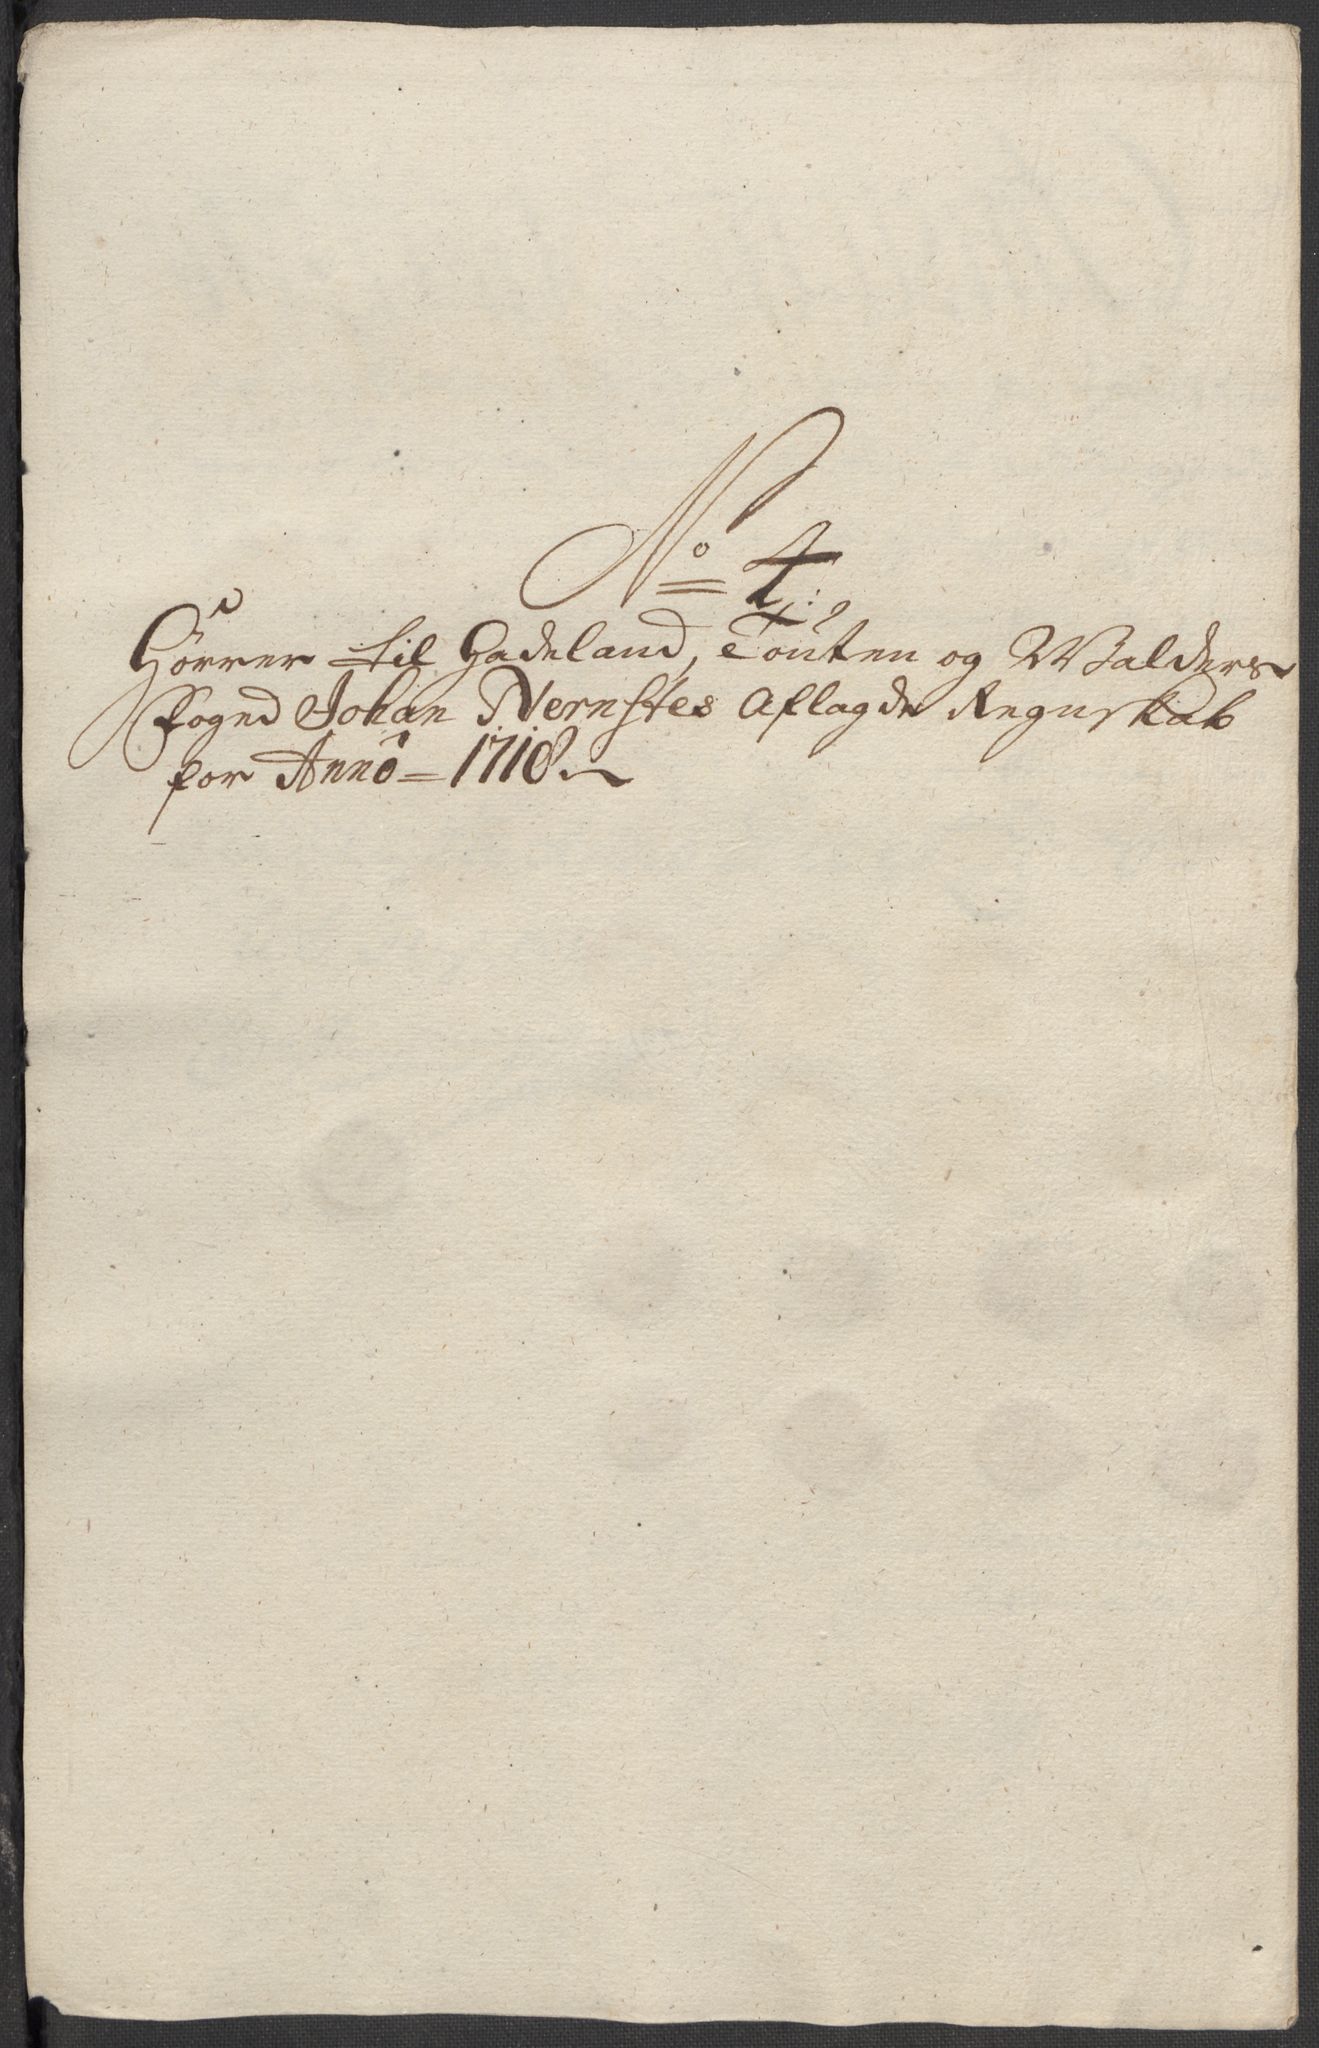 No 4:
Hörrer til Hadeland, Touten og Walders
Foged Johan Nernstes Aflagde Regnskab
for Anno 1718